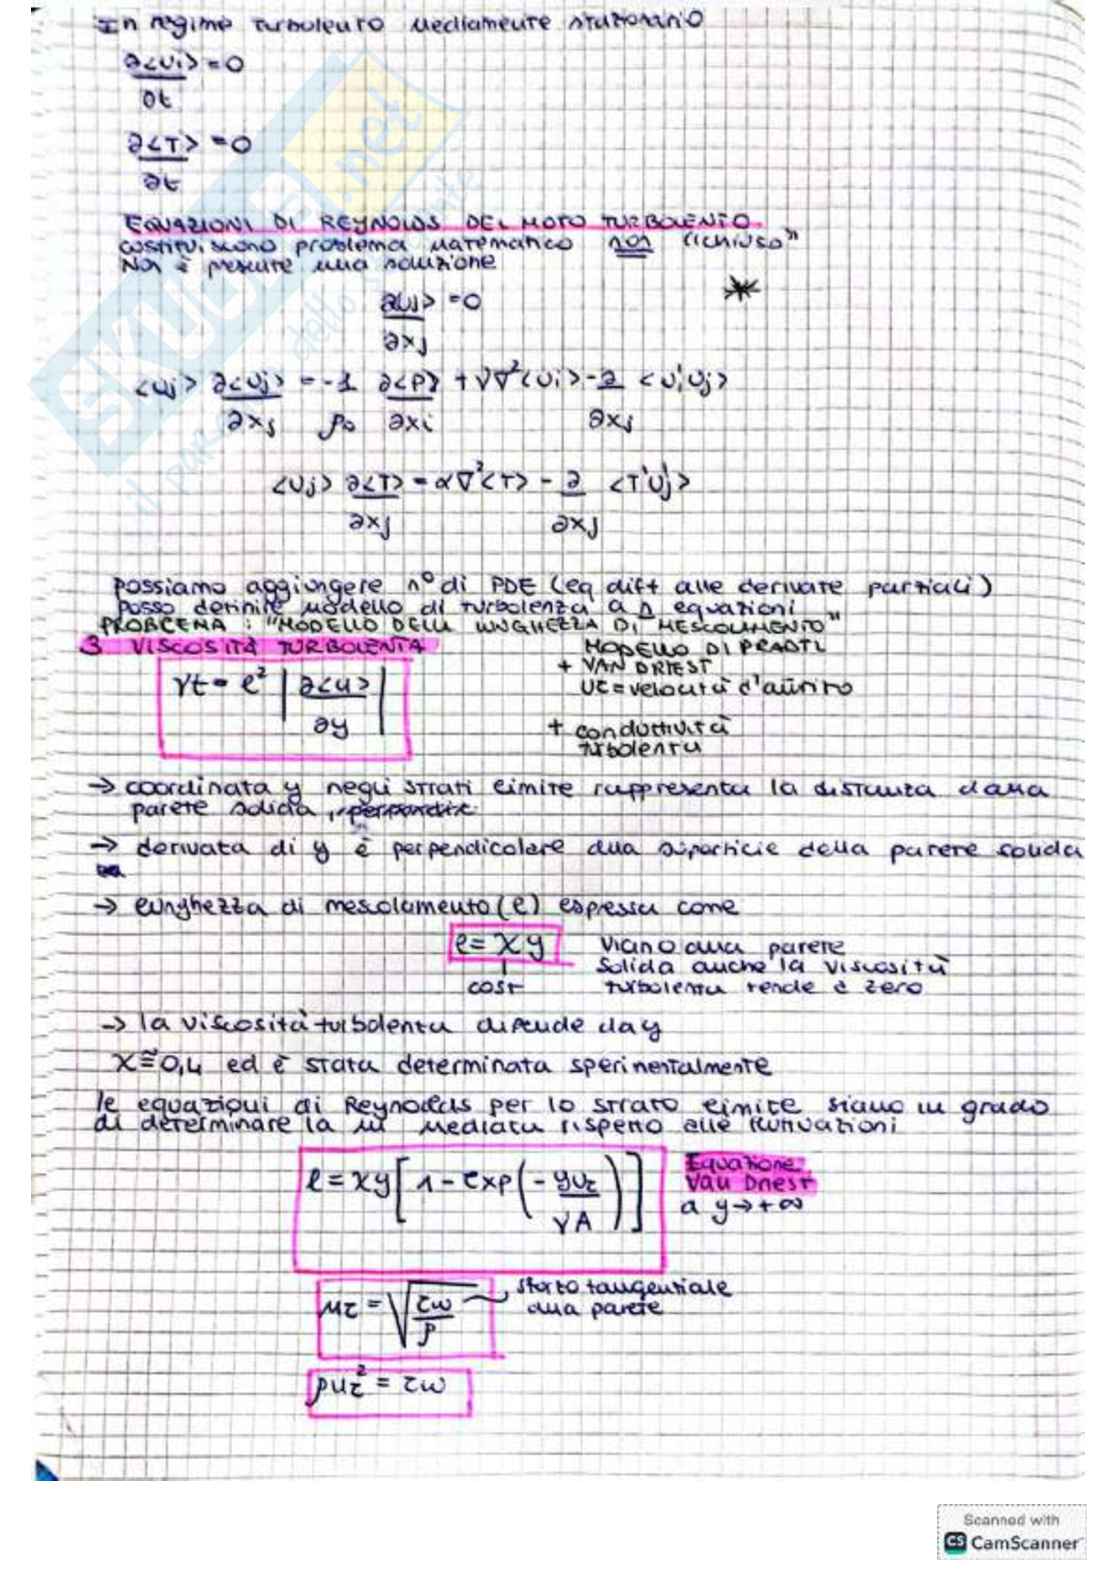 In regime turbolento mediamente stazionario
∂<Ui> = 0
∂t
∂<T> = 0
∂t
EQUAZIONI DI REYNOLDS DEL MOTO TURBOLENTO
costituiscono problema matematico non "chiuso"
Non è presente una soluzione
∂<Uj> = 0
∂xj
<Uj> ∂<Uj> = -1 ∂<P> + ν∇²<Ui> - ∂ <U'iU'j>
∂xj ρ0 ∂xi ∂xj
<Uj> ∂<T> = α∇²<T> - ∂ <T'U'j>
∂xj ∂xj
possiamo aggiungere n° di PDE (eq diff alle derivate parziali)
posso definire modello di turbolenza a n equazioni
PROBLEMA : "MODELLO DELLA LUNGHEZZA DI MESCOLAMENTO"
3 VISCOSITÀ TURBOLENTA
MODELLO DI PRADTL
+ VAN DRIEST
Uτ = velocità d'attrito
νt = ℓ² | ∂<u> |
∂y
+ conduttività
turbolenta
→ coordinata y negli strati limite rappresenta la distanza dalla
parete solida, perpendic
→ derivata di y è perpendicolare alla superficie della parete solida
→ lunghezza di mescolamento (ℓ) espressa come
ℓ = χy
cost
Viano alla parete
Solida anche la viscosità
turbolenta rende è zero
→ la viscosità turbolenta dipende da y
χ ≅ 0,4 ed è stata determinata sperimentalmente
le equazioni di Reynolds per lo strato limite siano in grado
di determinare la mediata rispetto alle fluttuazioni
ℓ = χy [ 1 - exp ( - yuτ ) ]
νA
Equazione
Van Driest
a y → +∞
uτ = √ τw
ρ
sforzo tangenziale
alla parete
ρuτ² = τw
SKUOLA.net
Scanned with
CS CamScanner